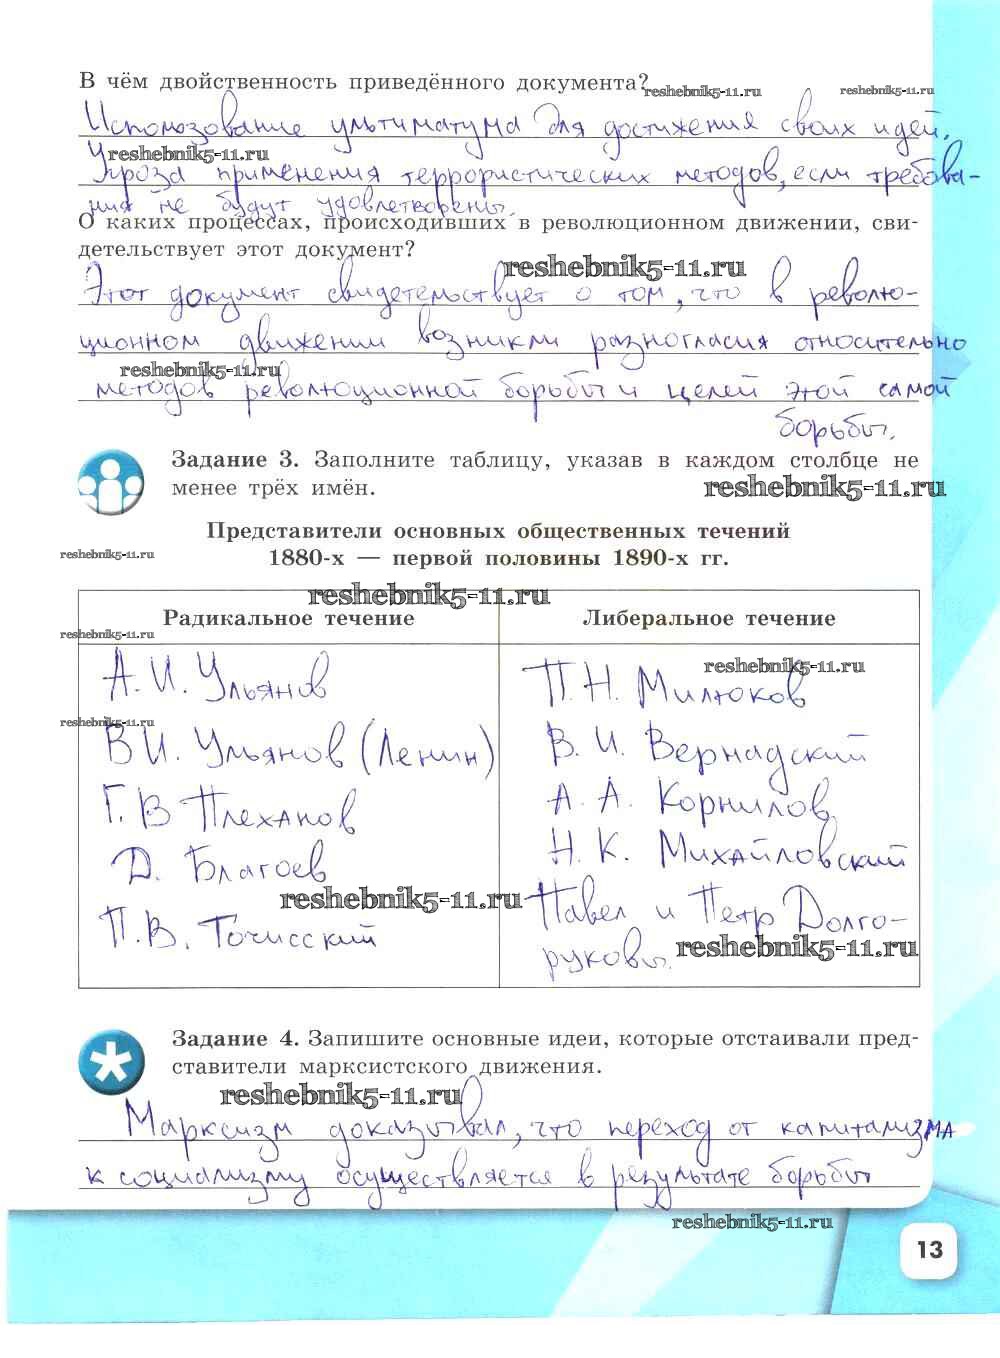 В чём двойственность приведённого документа?
reshebnik5-11.ru
reshebnik5-11.ru
Использование ультиматума для достижения своих идей.
reshebnik5-11.ru
Угроза применения террористических методов, если требова-
ния не будут удовлетворены.
О каких процессах, происходивших в революционном движении, сви-
детельствует этот документ?
reshebnik5-11.ru
Этот документ свидетельствует о том, что в револю-
ционном движении возникли разногласия относительно
reshebnik5-11.ru
методов революционной борьбы и целей этой самой
борьбы.
Задание 3. Заполните таблицу, указав в каждом столбце не
менее трёх имён.
reshebnik5-11.ru
Представители основных общественных течений
1880-х — первой половины 1890-х гг.
reshebnik5-11.ru
reshebnik5-11.ru
Радикальное течение
Либеральное течение
reshebnik5-11.ru
А. И. Ульянов
reshebnik5-11.ru
П. Н. Милюков
reshebnik5-11.ru
В И. Ульянов (Ленин)
В. И. Вернадский
Г. В Плеханов
А. А. Корнилов
Д. Благоев
Н. К. Михайловский
reshebnik5-11.ru
П. В. Точисский
Павел и Петр Долго-
руковы.
reshebnik5-11.ru
Задание 4. Запишите основные идеи, которые отстаивали пред-
ставители марксистского движения.
reshebnik5-11.ru
Марксизм доказывал, что переход от капитализма
к социализму осуществляется в результате борьбы
reshebnik5-11.ru
13